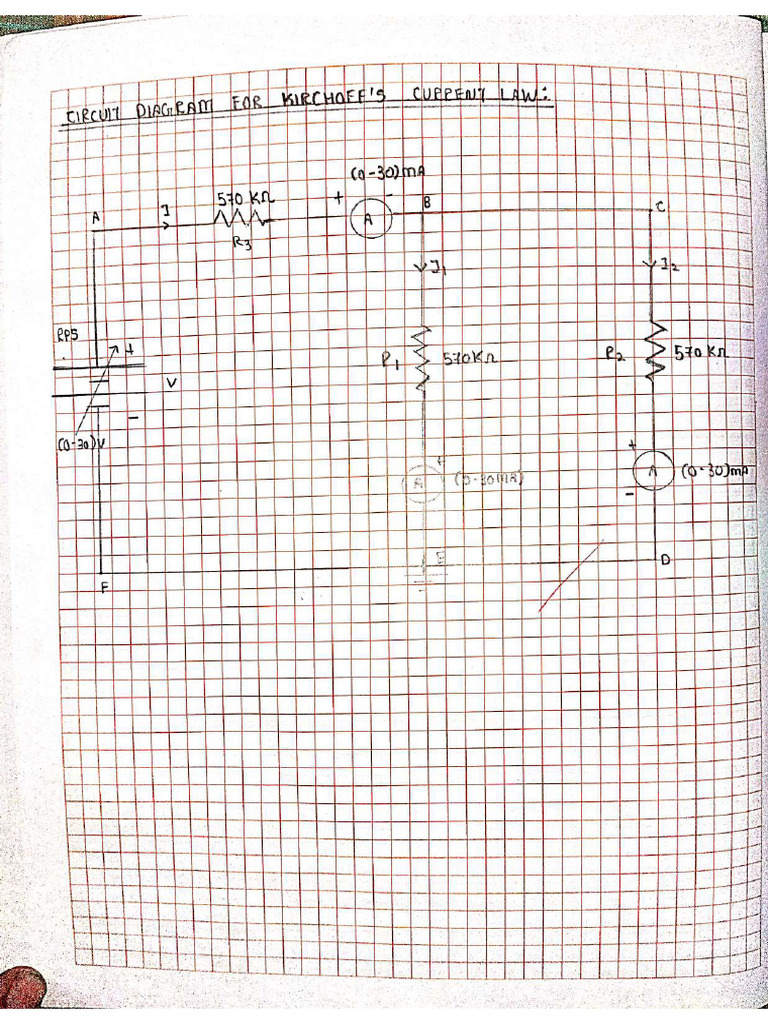 CIRCUIT DIAGRAM FOR KIRCHOFF'S CURRENT LAW:
(0-30)mA
A I 570 KΩ + A - B C
R3
I1 I2
RPS
+
R1 570KΩ R2 570KΩ
V
-
(0-30)V
+ A (0-30mA) + A - (0-30)mA
E D
F